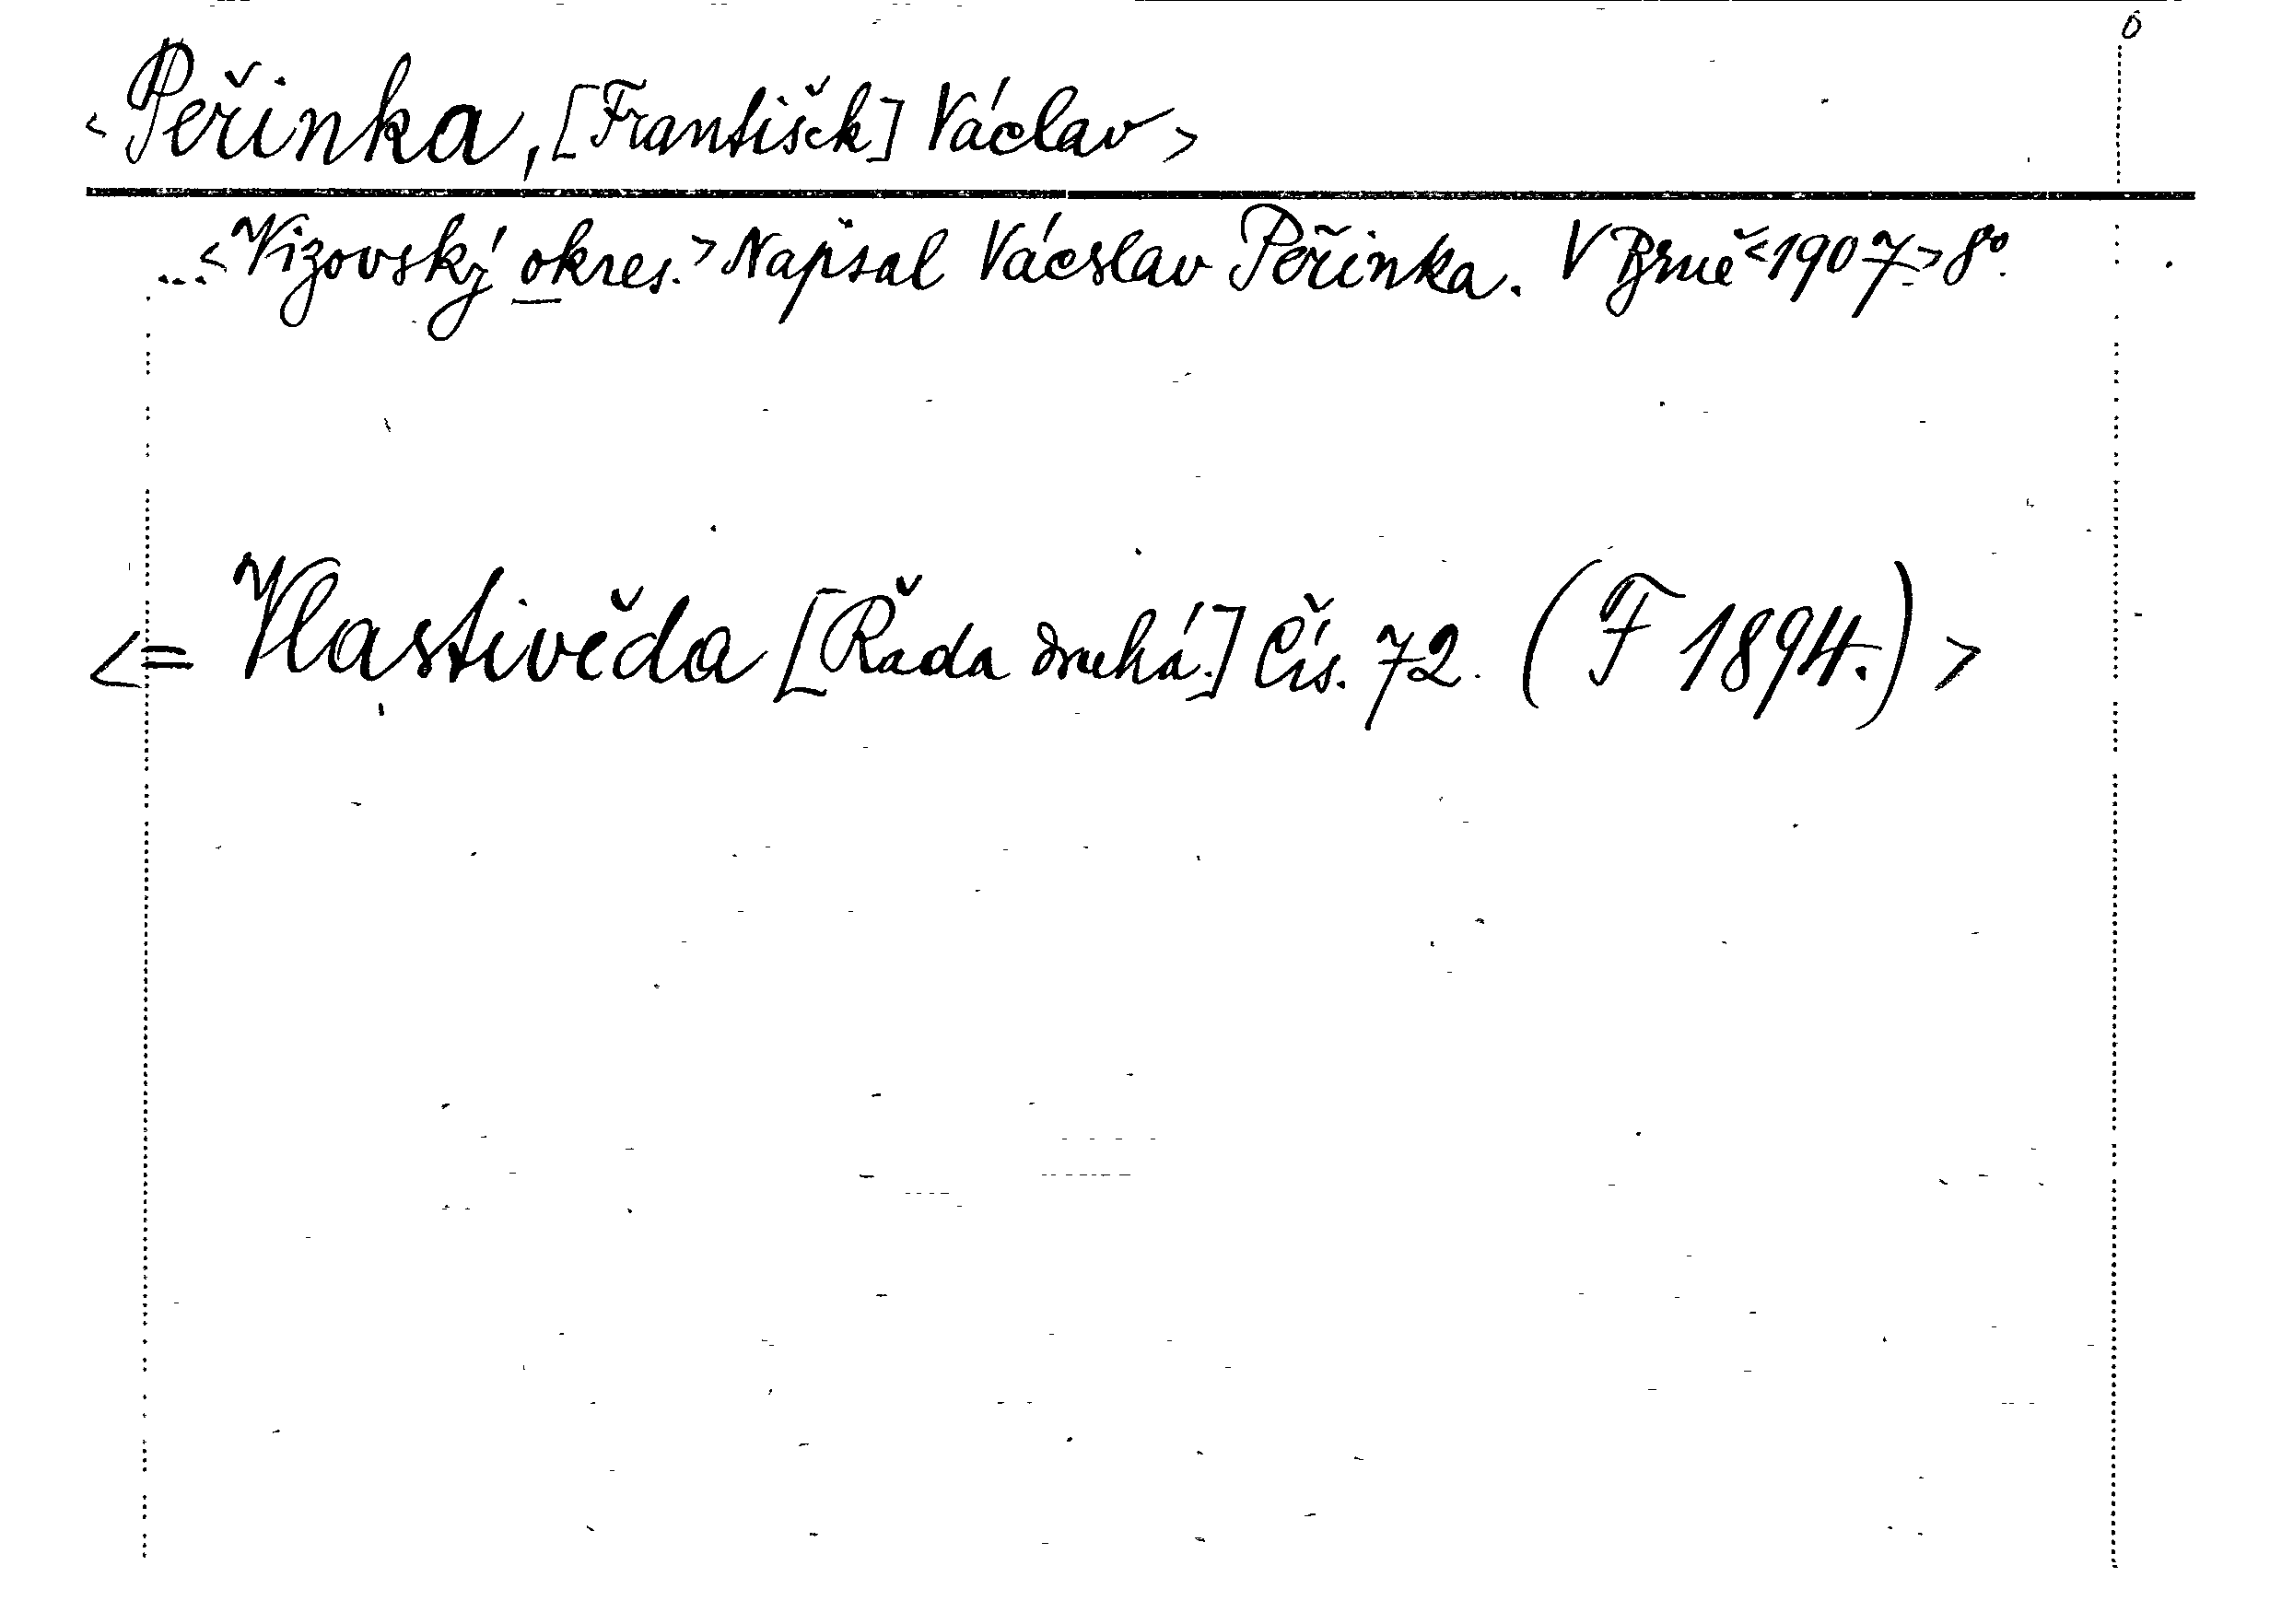 ô
<Peřinka, [František] Václav>
...<Vizovský okres.> Napsal Vácslav Peřinka. V Brně <1907> 8°.
<= Vlastivěda [Řada druhá.] Čís. 72. (F 1894.) >